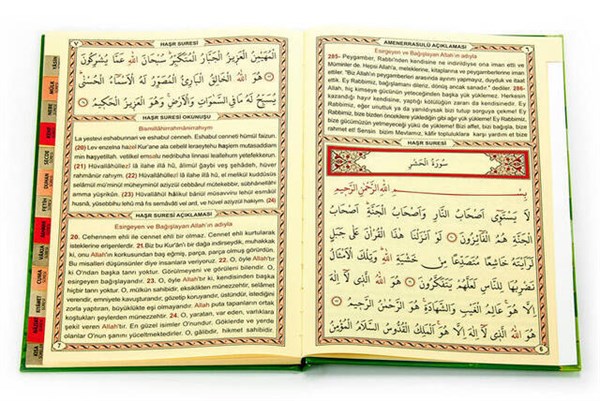 AMENERRASULÜ AÇIKLAMASI
٦
Esirgeyen ve Bağışlayan Allah'ın adıyla
285- Peygamber, Rabbi'nden kendisine ne indirildiyse ona iman etti ve
Müminler de. Hepsi Allah'a, meleklerine, kitaplarına ve peygamberlerine iman
ettiler. "Biz Allah'ın peygamberleri arasında ayırım yapmayız, duyduk ve itaat
ettik. Ey Rabbimiz, bağışlamanı dileriz, dönüş ancak sanadır." dediler. 286-
Allah, hiç kimseye gücünün yeteceğinden başka yük yüklemez. Herkesin
kazandığı hayır kendisine, yaptığı kötülüğün zararı da kendisinedir. Ey
Rabbimiz, eğer unuttuk ya da yanıldıysak bizi tutup sorguya çekme! Ey
Rabbimiz, bize bizden öncekilere yüklediğin gibi ağır yük yükleme! Ey Rabbimiz,
bize gücümüzün yetmeyeceği yükü de yükleme! Bizi affet, bizi bağışla, bize
rahmet et! Sensin bizim Mevlamız, kâfir topluluklara karşı yardım et bize
HAŞR SURESİ
سُورَةُ الْحَشْرِ
بِسْمِ اللّٰهِ الرَّحْمٰنِ الرَّحِيمِ
لَا يَسْتَوِي أَصْحَابُ النَّارِ وَأَصْحَابُ الْجَنَّةِ أَصْحَابُ
الْجَنَّةِ هُمُ الْفَائِزُونَ لَوْ أَنْزَلْنَا هٰذَا الْقُرْاٰنَ عَلٰى جَبَلٍ
لَرَاَيْتَهُ خَاشِعًا مُتَصَدِّعًا مِنْ خَشْيَةِ اللّٰهِ وَتِلْكَ الْاَمْثَالُ
نَضْرِبُهَا لِلنَّاسِ لَعَلَّهُمْ يَتَفَكَّرُونَ هُوَ اللّٰهُ الَّذِي لَا اِلٰهَ
اِلَّا هُوَ عَالِمُ الْغَيْبِ وَالشَّهَادَةِ هُوَ الرَّحْمٰنُ الرَّحِيمُ
هُوَ اللّٰهُ الَّذِي لَا اِلٰهَ اِلَّا هُوَ اَلْمَلِكُ الْقُدُّوسُ السَّلَامُ الْمُؤْمِنُ
6
٧
HAŞR SURESİ
الْمُهَيْمِنُ الْعَزِيزُ الْجَبَّارُ الْمُتَكَبِّرُ سُبْحَانَ اللّٰهِ عَمَّا يُشْرِكُونَ
هُوَ اللّٰهُ الْخَالِقُ الْبَارِئُ الْمُصَوِّرُ لَهُ الْاَسْمَاءُ الْحُسْنٰى
يُسَبِّحُ لَهُ مَا فِي السَّمٰوَاتِ وَالْاَرْضِ وَهُوَ الْعَزِيزُ الْحَكِيمُ
HAŞR SURESİ OKUNUŞU
Bismillâhirrahmânirrahıym
La yestevi eshabunnari ve eshabul cenneti. Eshabul cenneti hümül faizun.
(20) Lev enzelna hazel Kur'ane ala cebelil leraeytehu haşiem mutasaddiam
min haşyetillah. vetilkel emsalu nedribuha linnasi leallehum yetefekkerun.
(21) (22) Hüvallâhüllezî lâ ilahe illâ hû, âlimül ğaybi veş şehâdeh, hüver
rahmânür rahim. (23) Hüvallâhüllezi lâ ilahe illâ hû, el melikül kuddûsüs
selâmül mü'minül müheyminül aziyzül cebbârul mütekebbir, sübhânellâhi
amma yüşrikûn. (23) Hüvallâhül hâlikul bâriül müsavviru lehül esmâül
husnâ, yüsebbihu lehû mâ fis semâvâti vel ard, ve hüvel aziyzül hakim (24)
HAŞR SURESİ AÇIKLAMASI
Esirgeyen ve Bağışlayan Allah'ın adıyla
20. Cehennem ehli ile cennet ehli bir olmaz. Cennet ehli kurtularak
isteklerine erişenlerdir. 21.Biz bu Kur'ân'ı bir dağa indirseydik, muhakkak
ki, onu Allah'ın korkusundan baş eğmiş, parça, parça olmuş görürdün.
Bu misalleri düşünsünler diye insanlara veriyoruz. 22. O, öyle Allah'tır
ki O'ndan başka tanrı yoktur. Görülmeyeni ve görüleni bilendir. O,
esirgeyen bağışlayandır. 23. O, öyle Allah'tır ki, kendisinden başka
hiçbir tanrı yoktur. O, mülkün sahibidir, eksiklikten münezzehtir, selâmet
verendir, emniyete kavuşturandır, gözetip koruyandır, üstündür, istediğini
zorla yaptıran, büyüklükte eşi olmayandır. Allah puta tapanların ortak
koştukları şeylerden münezzehtir. 24. O, yaratan, var eden, varlıklara
şekil veren Allah'tır. En güzel isimler O'nundur. Göklerde ve yerde
olanlar O'nun şanını yüceltmektedirler. O, gâlibdir, hikmet sahibidir.
7
YASİN
MÜLK
NEBE
SECDE
DUHAN
FETİH
VAKIA
CUMA
KIYAMET